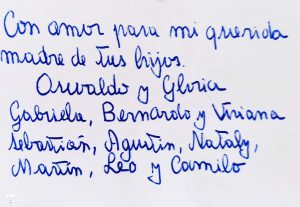 Con amor para mi querida
madre de tus hijos.
Osvaldo y Gloria
Gabriela, Bernardo y Viviana
Sebastián, Agustín, Nataly,
Martín, Leo y Camilo